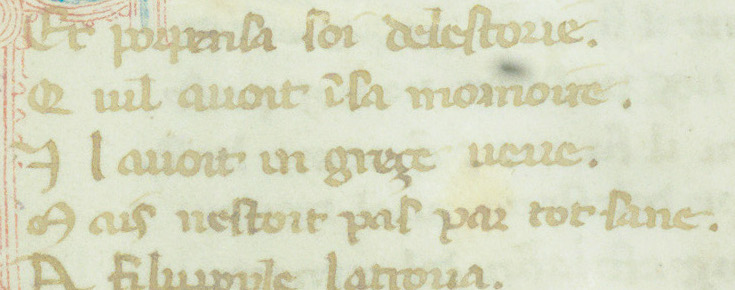 Et porpensa soi delestorie.
Q uil auoit ĩ sa memoire.
I l auoit in greze ueue.
M ais nestoit pas par tot sane.
A filuiple latroua.